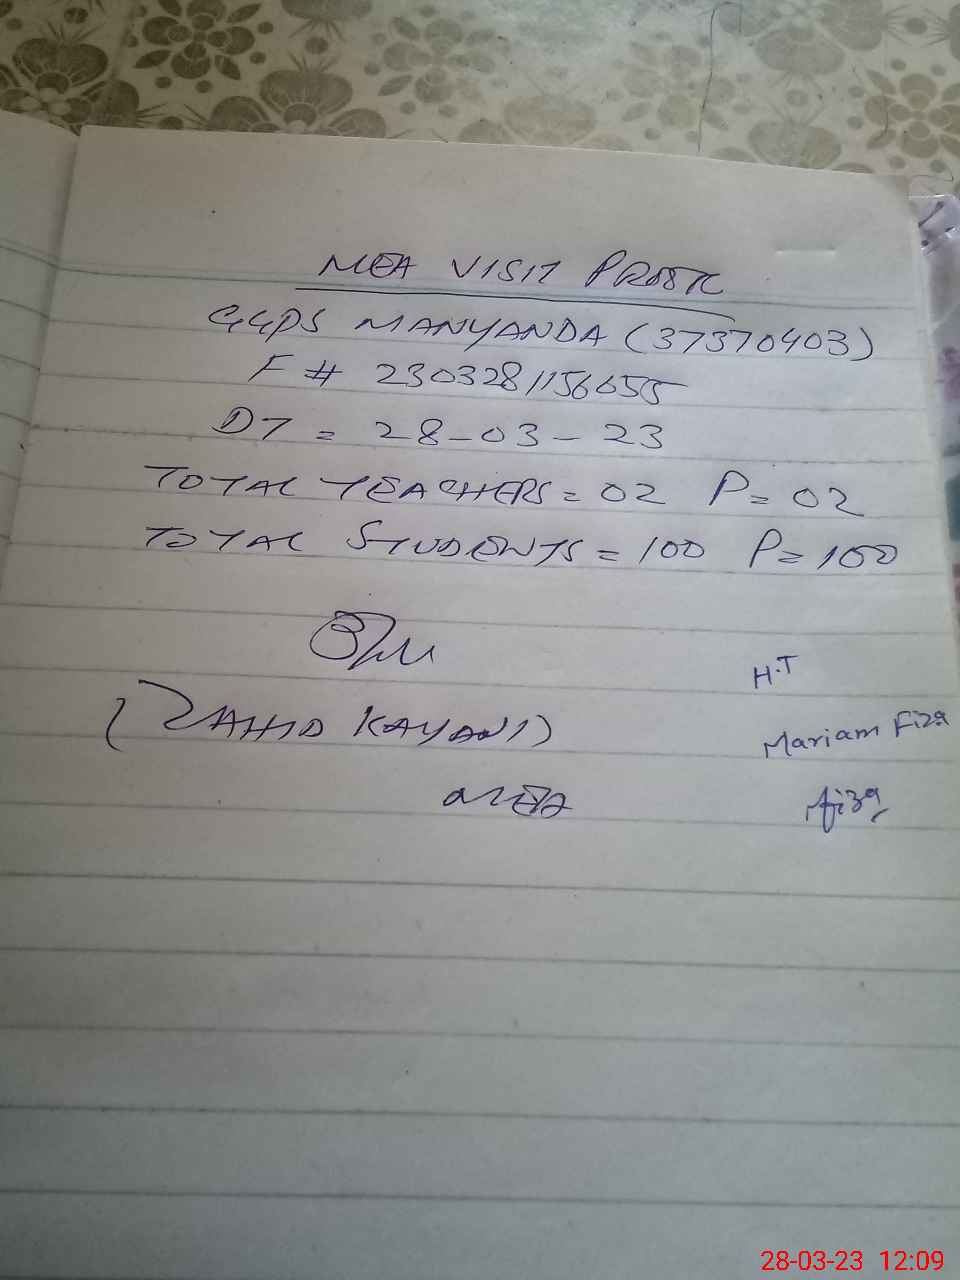 MEA VISIT PROOF
GGPS MANYANDA (37370403)
F # 2303281156055
DT = 28-03-23
TOTAL TEACHERS = 02 P = 02
TOTAL STUDENTS = 100 P = 100
(ZAHID KAYANI)
MEA
H.T
Mariam Fiza
Fiza
28-03-23 12:09